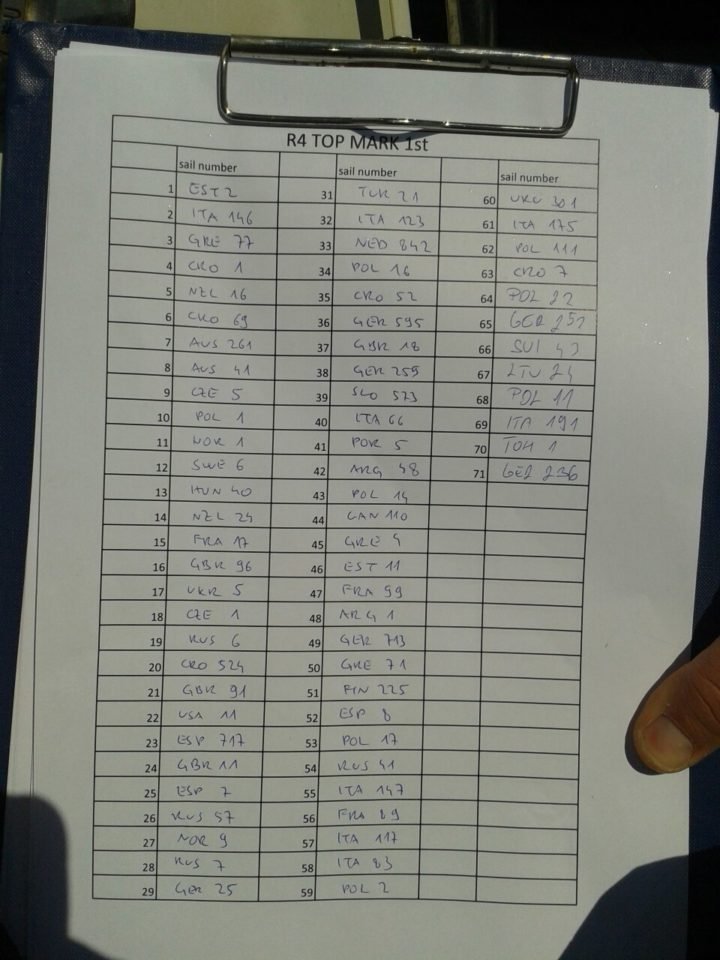 R4 TOP MARK 1st
sail number sail number sail number
1 EST 2 31 TUR 21 60 URU 301
2 ITA 146 32 ITA 123 61 ITA 175
3 GRE 77 33 NED 842 62 POL 111
4 CRO 1 34 POL 16 63 CRO 7
5 NZL 16 35 CRO 52 64 POL 22
6 CRO 69 36 GER 595 65 GER
7 AUS 261 37 GBR 18 66 SUI
8 AUS 41 38 GER 259 67 LTU 24
9 CZE 5 39 SLO 573 68 POL 11
10 POL 1 40 ITA 66 69 ITA 191
11 NOR 1 41 POR 5 70 1
12 SWE 6 42 ARG 48 71 GER 236
13 HUN 40 43 POL 14
14 NZL 24 44 CAN 110
15 FRA 17 45 GRE 4
16 GBR 96 46 EST 11
17 UKR 5 47 FRA 99
18 CZE 1 48 ARG 1
19 RUS 6 49 GER 713
20 CRO 524 50 GRE 71
21 GBR 91 51 FIN 225
22 USA 11 52 ESP 8
23 ESP 717 53 POL 17
24 GBR 11 54 RUS 41
25 ESP 7 55 ITA 147
26 RUS 57 56 FRA 89
27 NOR 9 57 ITA 117
28 RUS 7 58 ITA 83
29 GER 25 59 POL 2